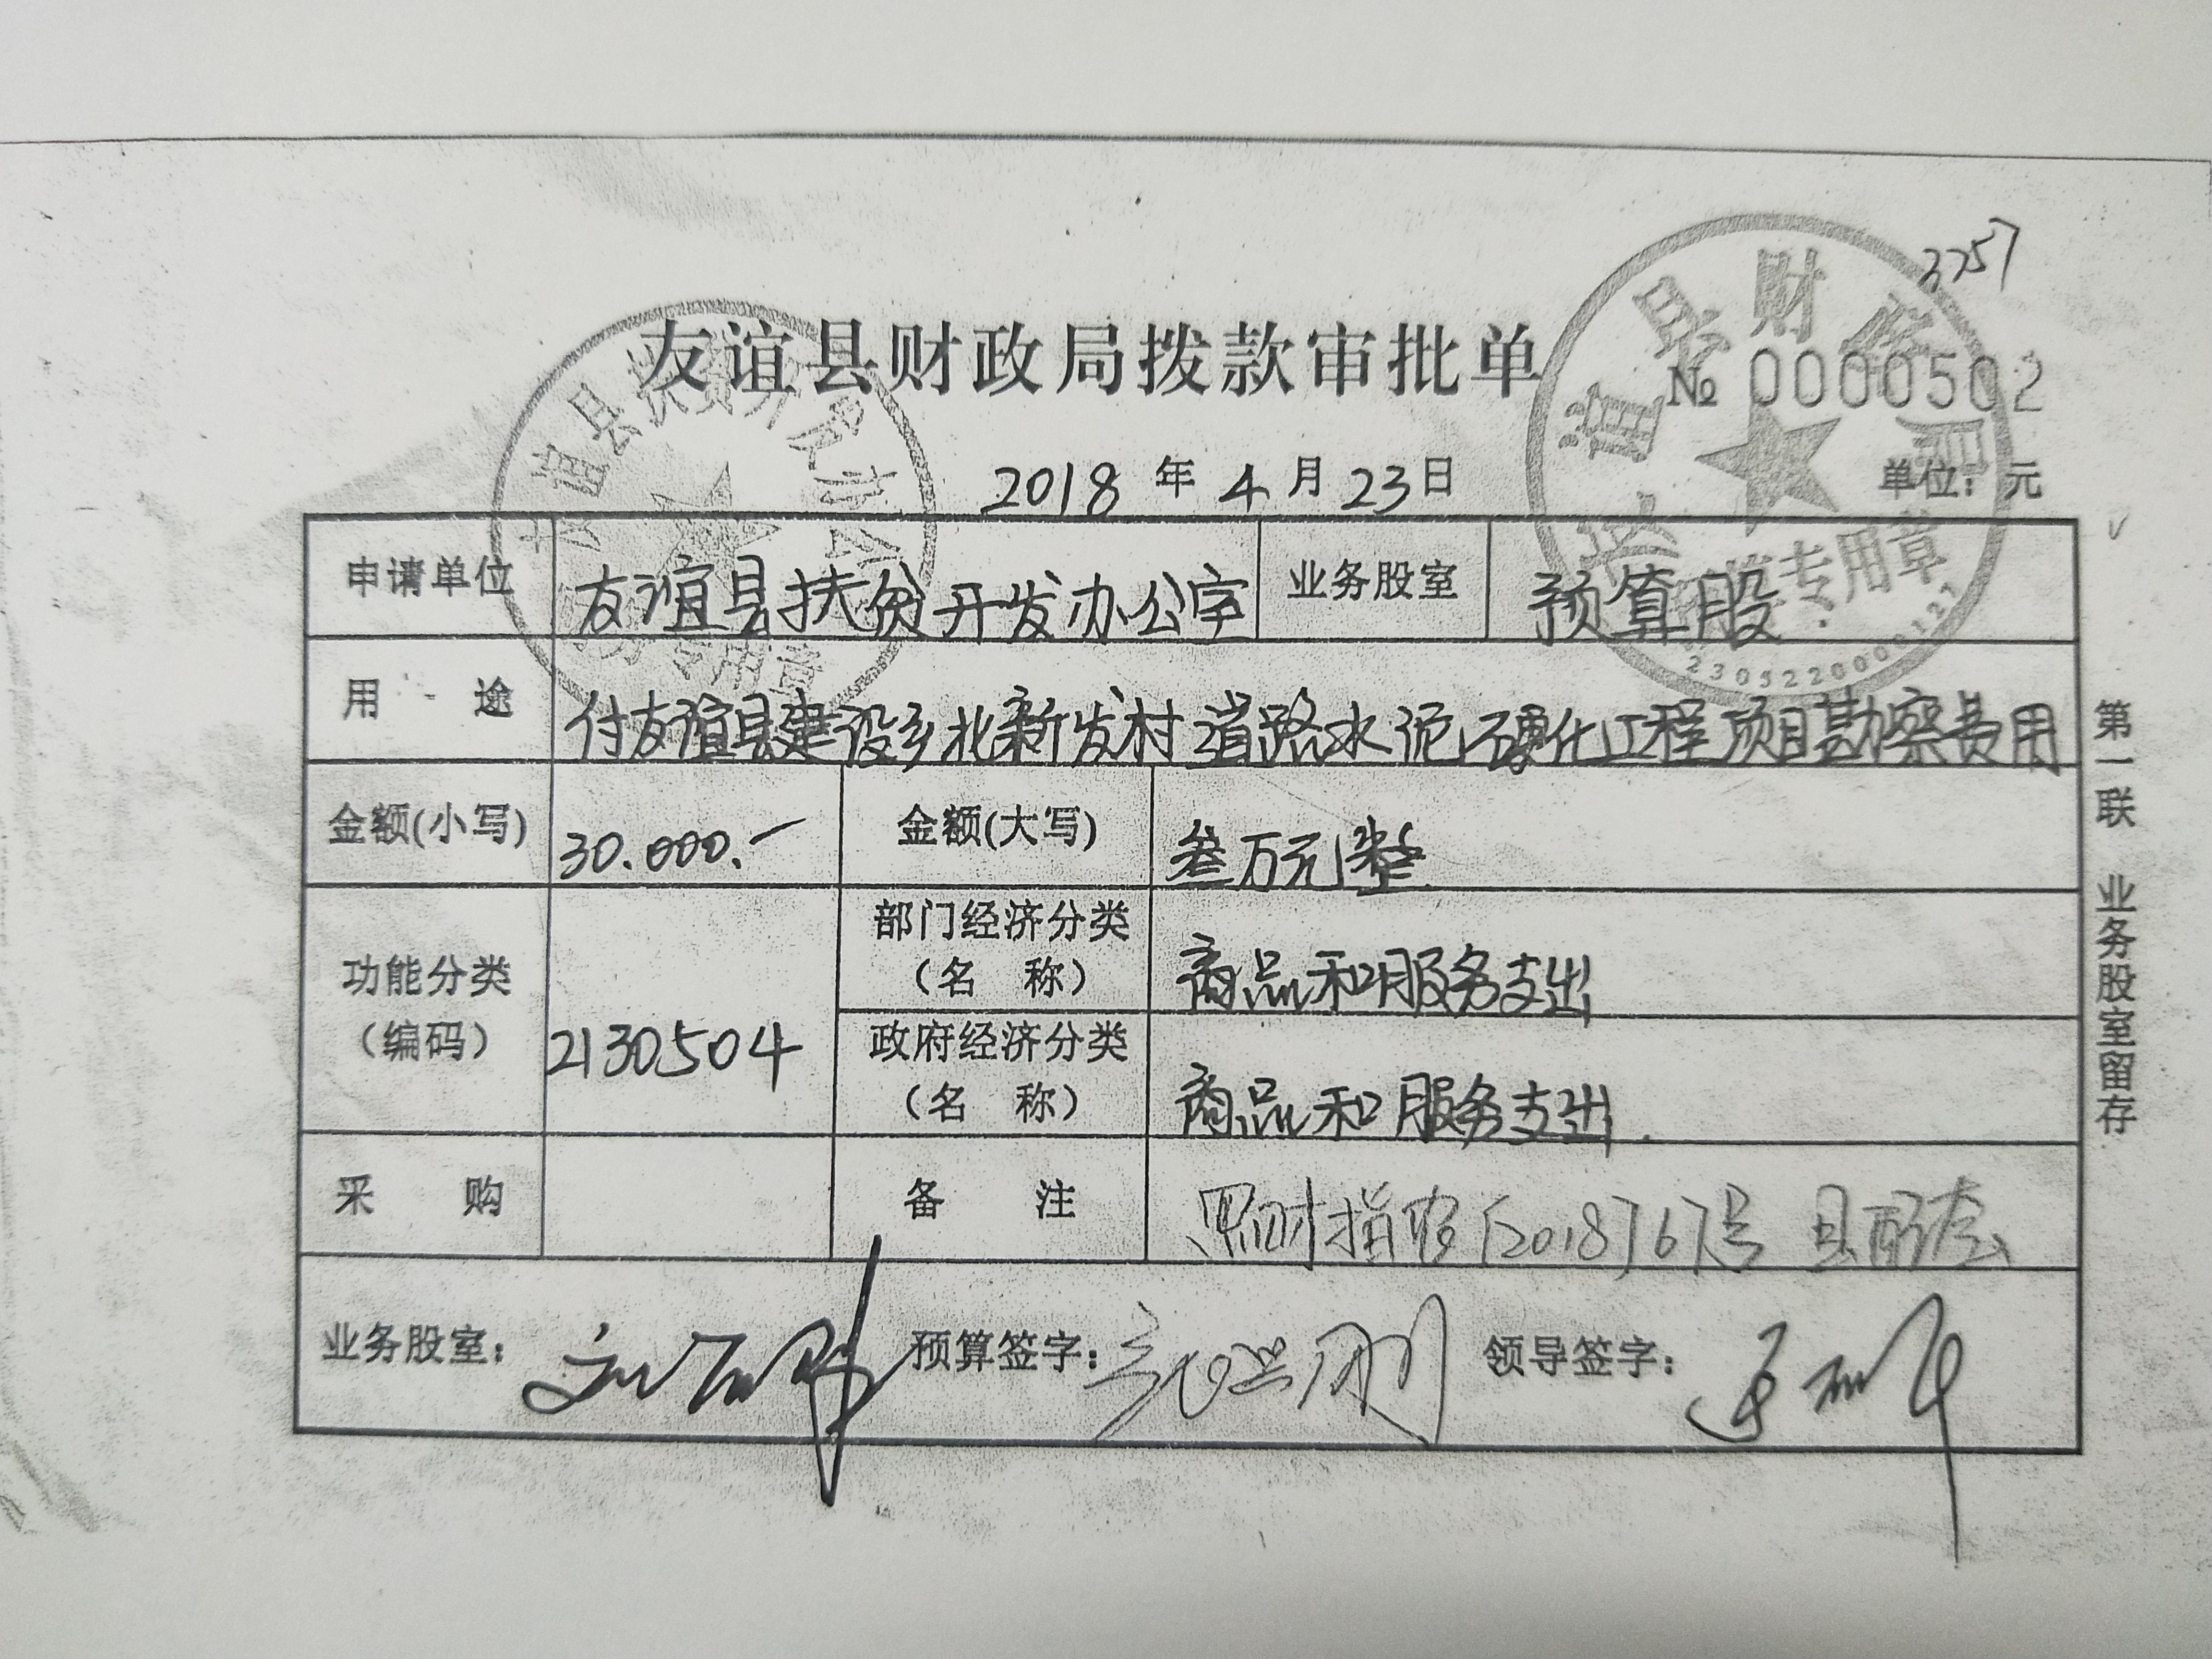 3257
友谊县财政局拨款审批单
№ 0000502
2018 年 4 月 23 日
单位：元
申请单位 友谊县扶贫开发办公室 业务股室 预算股
用途 付友谊县建设乡北新发村道路水泥硬化工程项目勘察费用
金额(小写) 30.000.- 金额(大写) 叁万元整
功能分类（编码） 2130504 部门经济分类（名 称） 商品和服务支出
政府经济分类（名 称） 商品和服务支出
采购 备注 黑财指农〔2018〕67号
业务股室： 预算签字： 领导签字：
第一联 业务股室留存
专用章
2305220000127
专用章